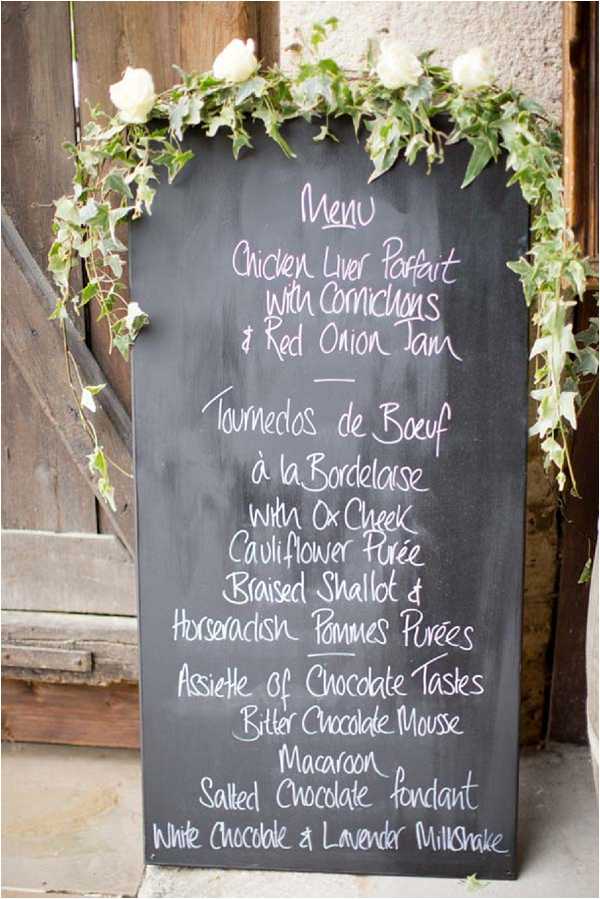 Menu
Chicken Liver Parfait
with Cornichons
& Red Onion Jam
Tournedos de Boeuf
à la Bordelaise
with Ox Cheek
Cauliflower Purée
Braised Shallot &
Horseradish Pommes Purées
Assiette of Chocolate Tastes
Bitter Chocolate Mousse
Macaroon
Salted Chocolate fondant
White Chocolate & Lavender Millkshake